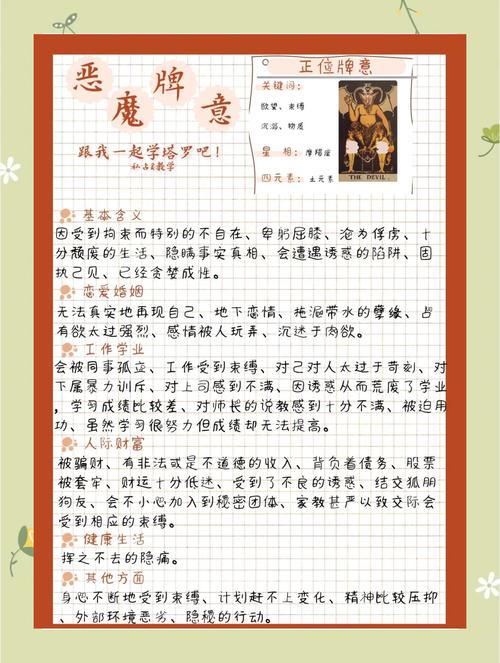 恶魔牌意
跟我一起学塔罗吧！
私占&教学
正位牌意
关键词：
欲望、束缚
沉溺、物质
星 相：摩羯座
四元素：土元素
THE DEVIL
基本含义
因受到拘束而特别的不自在、卑躬屈膝、沦为俘虏、十
分颓废的生活、隐瞒事实真相、会遭遇诱惑的陷阱、固
执己见、已经贪婪成性。
恋爱婚姻
无法真实地再现自己、地下恋情、拖泥带水的孽缘、占
有欲太过强烈、感情被人玩弄、沉迷于肉欲。
工作学业
会被同事孤立、工作受到束缚、对己对人太过于苛刻、对
下属暴力训斥、对上司感到不满、因诱惑从而荒废了学业
，学习成绩比较差、对师长的说教感到十分不满、被迫用
功、虽然学习很努力但成绩却无法提高。
人际财富
被骗财、有非法或是不道德的收入、背负着债务、股票
被套牢、财运十分低迷、受到了不良的诱惑、结交狐朋
狗友、会不小心加入到秘密团体、家教甚严以致交际会
受到相应的束缚。
健康生活
挥之不去的隐痛。
其他方面
身心不断地受到束缚、计划赶不上变化、精神比较压抑
、外部环境恶劣、隐秘的行动。